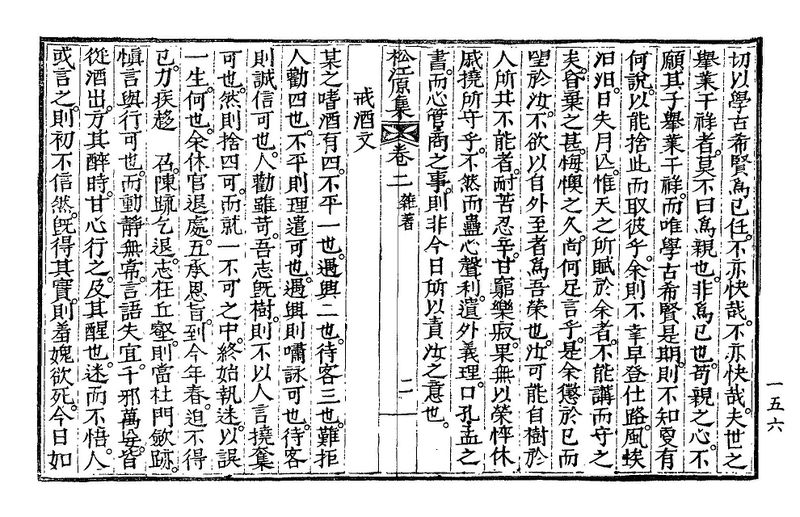 切以學古希賢爲己任。不亦快哉。不亦快哉。夫世之
擧業干祿者。莫不曰爲親也。非爲己也。苟親之心。不
願其子擧業干祿。而唯學古希賢是期。則不知更有
何說。以能捨此而取彼乎。余則不幸早登仕路。風埃
汩汩。日失月亡。惟天之所賦於余者。不能講而守之
矣。省棄之甚。悔懊之久。尙何足言乎。是余懲於己而
望於汝。不欲以自外至者爲吾榮也。汝可能自樹於
人所其不能者。耐苦忍辛。甘窮樂寂。果無以榮悴休
戚撓所守乎。不然而蠱心聲利。遺外義理。口孔孟之
書而心管商之事。則非今日所以責汝之意也。
松江原集 卷二 雜著 二
戒酒文
某之嗜酒有四。不平一也。遇興二也。待客三也。難拒
人勸四也。不平則理遣可也。遇興則嘯詠可也。待客
則誠信可也。人勸雖苛。吾志旣樹。則不以人言撓奪
可也。然則捨四可。而就一不可之中。終始執迷。以誤
一生。何也。余休官退處。五承恩旨。到今年春。迫不得
已。力疾趍 召。陳疏乞退。志在丘壑。則當杜門斂跡。
愼言與行可也。而動靜無常。言語失宜。千邪萬妄。皆
從酒出。方其醉時。甘心行之。及其醒也。迷而不悟。人
或言之。則初不信然。旣得其實。則羞媿欲死。今日如
一五六